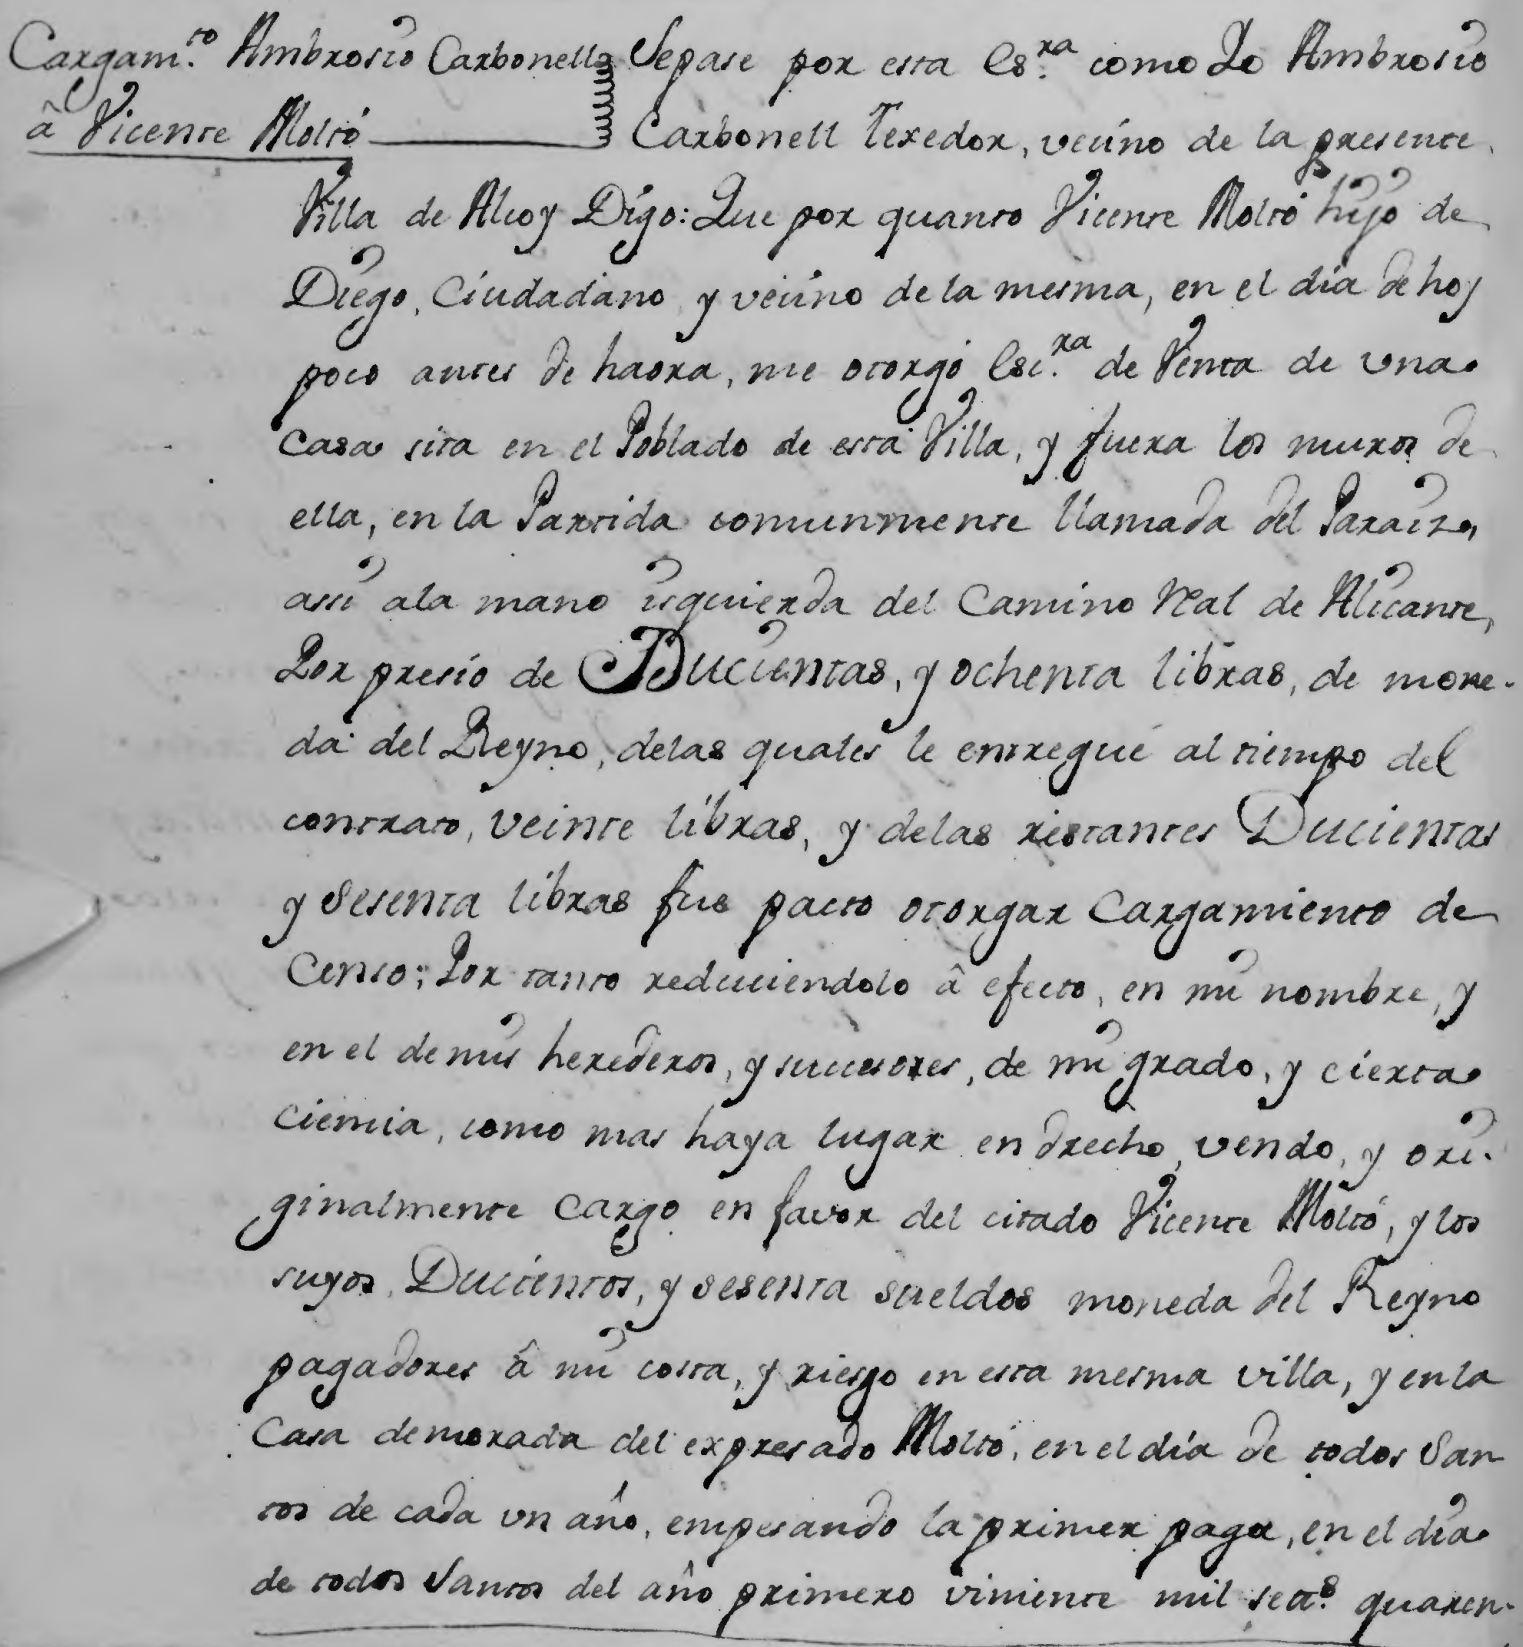 Cargam.to Ambrosio Carbonell
â Vicente Moltó
Sepase por esta Es.ra como Yo Ambrosio
Carbonell Texedor, vecino de la presente
Villa de Alcoy Digo: Que por quanto Vicente Moltó hijo de
Diego, Ciudadano y vecino de la mesma, en el dia de hoy
poco antes de haora, me otorgó Esc.ra de Venta de una
Casa sita en el Poblado de esta Villa, y fuera los muros de
ella, en la Partida comunmente llamada del Paraiso,
assi ala mano isquierda del Camino Real de Alicante,
Por presio de Ducientas, y ochenta libras, de mone-
da del Reyno, delas quales le entregué al tiempo del
contrato, veinte libras, y delas restantes Ducientas
y sesenta libras fue pacto otorgar Cargamiento de
Censo; Por tanto reduciendolo â efecto, en mi nombre, y
en el de mis herederos, y succesores, de mi grado, y cierta
ciencia, como mas haya lugar en drecho, vendo, y ori-
ginalmente Cargo en favor del citado Vicente Moltó, y los
suyos, Ducientos, y sesenta sueldos moneda del Reyno
pagadores â mi costa, y riesgo en esta mesma villa, y en la
Casa demorada del expresado Moltó, en el día de todos San-
tos de cada un año, empesando la primer paga, en el dia
de todos Santos del año primero viniente mil setes. quaren-